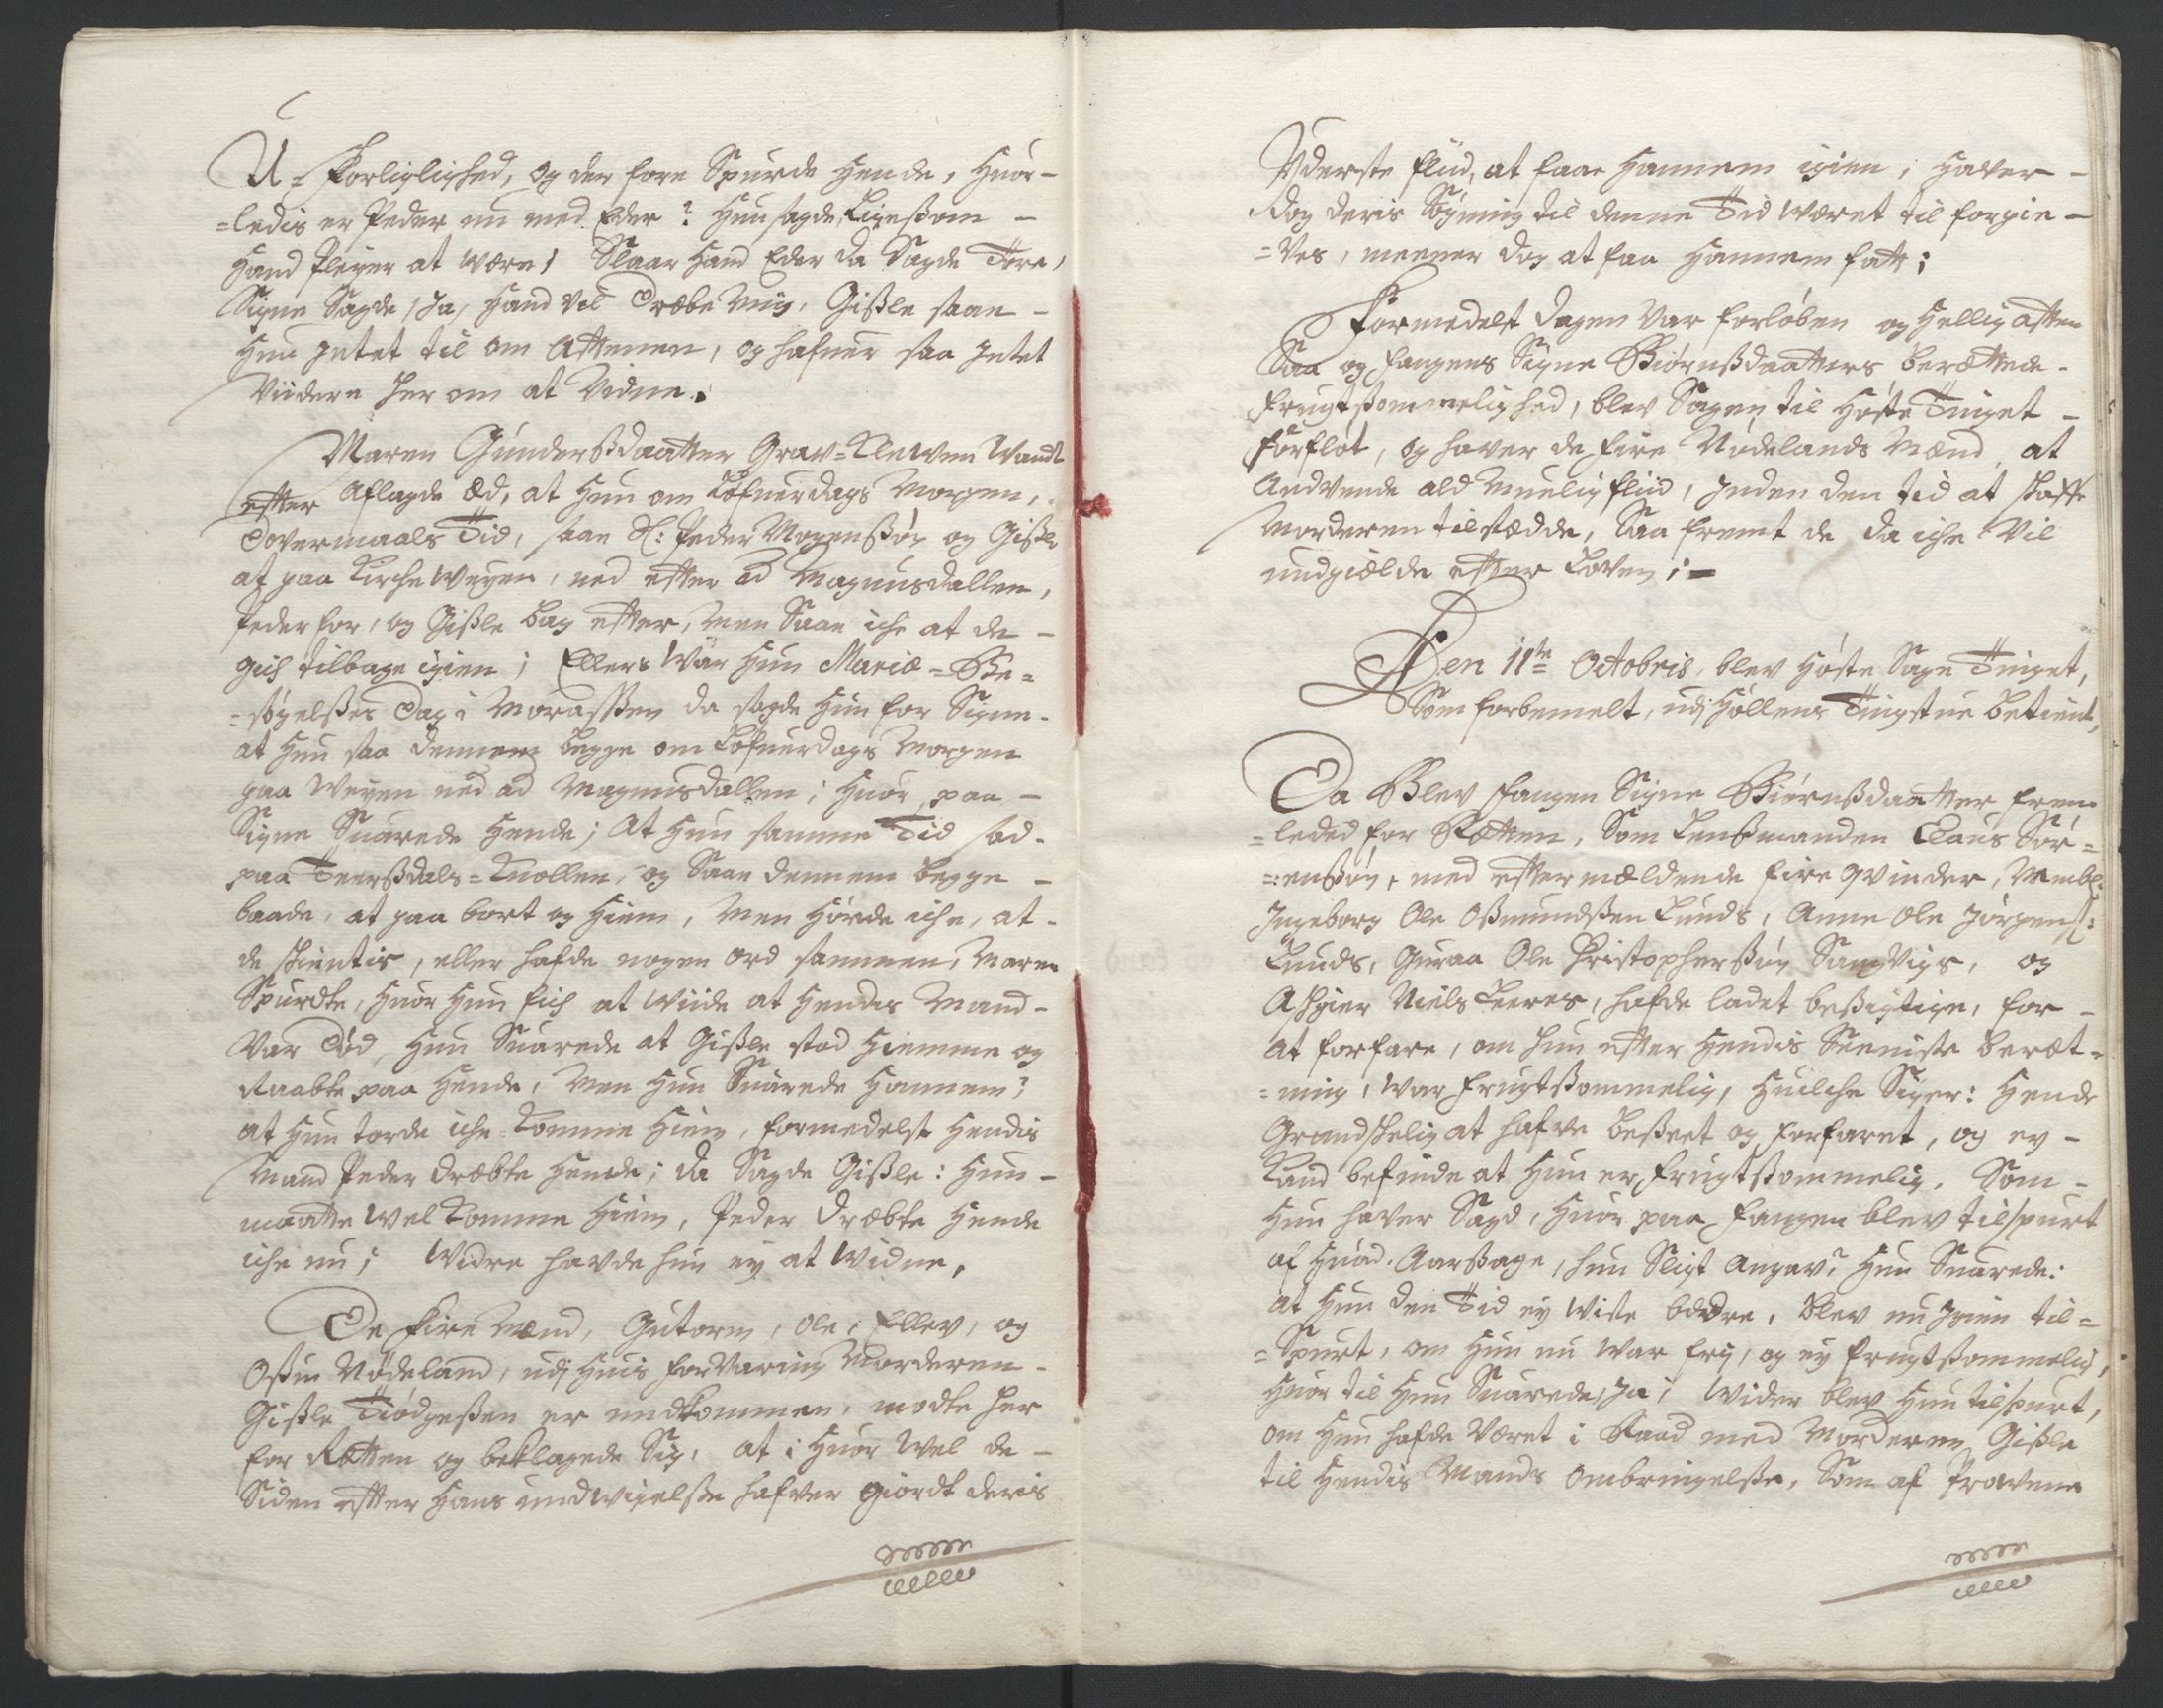 U-Forligelighed, og der fore Spurde hende, huor-
=ledis er Peder nu med Eder? hun sagde Ligesom -
hand Pleyer at være; Slaar hand Eder da Sagde Tore,
Signe Sagde, Ja, hand vil Dræbe Mig, Gisle saae -
hun Intet til om Aftenen, og hafuer saa Intet
Viidere her om at Vidne.
Maren Gundersdaatter Grav=Klewen Wandt
efter Aflagde Æd, at hun om Løfuerdags Morgen,
Dovermaals Tid, saae Sl: Peder Mogensøn og Gisle
at gaa Kirche Weyen, ned efter ad Magnusdallen,
Peder for, og Gisle bag efter, men Saae iche at de -
gich tilbage igien; Ellers War hun Mariæ=Be=
=søgelses Dag i Morassen da sagde hun for Signe -
at hun saa dennem begge om Løfuerdags Morgen
paa Weyen ned ad Magnusdallen; huor paa -
Signe Suarede hende; At hun samme Tid sad -
paa Teersdals=Knollen, og Saae dennem begge -
baade, at gaa bort og hiem, Men hørde iche, at -
de skientis, eller hafde nogen ord sammen, Maren
Spurdte, huor hun fich at wiide at hendis Mand -
Var Død, hun Suarede at Gisle stod hiemme og
Raabte paa hende, Men hun Suarede hannem;
at hun torde iche Komme hiem, formedelst hendis
Mand Peder dræbte hende; da Sagde Gisle: hun -
maatte wel Komme hiem, Peder dræbte hende
iche nu; Widre havde hun ey at Widne,
De Fire Mænd, Gutorm, Ole, Ellev, og
Osuu Nødeland, udj huis forvaring Morderen -
Gisle Tiødgesen er undkommen, mødte her
for Retten og beklagede Sig, at i huor wel de -
Siden efter hans undwigelse hafver giordt deris
Yderste fliid, at faae hannem igien, haver -
dog deris Søgning til denne Tid wæret til forgie -
=Ves, meener dog at faa hannem fatt;
Formedelst dagen var forløben og hellig aften
Saa og fangens Signe Biørnsdaatters berættede -
frugtsommelighed, blev Sagen til Høste Tinget -
forfløt, og haver de fire Nødelands Mænd, at
Andvende ald Muelig fliid, Inden den tid at skaffe
Morderen tilstædde, Saa fremt de da iche vil
undgielde efter Loven; -
Den 11te Octobris, blev Høste Sage Tinget,
Som forbemelt, udj Høllens Tingstue betient,
Da Blev Fangen Signe Biørnsdaatter frem
=leded for Retten, Som Lensmanden Claus Sør=
=ensøn, med efter mældende fire qvinder, Nembl:
Ingeborg Ole Osmundsen Lunds, Anne Ole Jørgens:
Lunds, Guraa Ole Christophersøn Sangvigs, og
Asgier Niels Leeres, hafde ladet besigtige, for -
at forfare, om hun efter hendis Seeniste beræt=
=ning, war frugtsommelig, huilche Siger: hende
Grandskelig at hafve beseet og forfaret, og ey -
Kand befinde at hun er frugtsommelig, Som -
hun haver Sagd, huor paa fangen blev tilspurt
af huad Aarsage, hun Sligt angav? hun Suarede:
at hun den Tid ey wiste bædre, blev nu Igien til=
=Spurt, om hun nu war frj, og ey frugtsommelig,
huor til hun Suarede, Ja; Wider blev hun tilspurt,
om hun hafde været i Raad med Morderen Gisle
til hendis Mands ombringelse, Som af Prowene